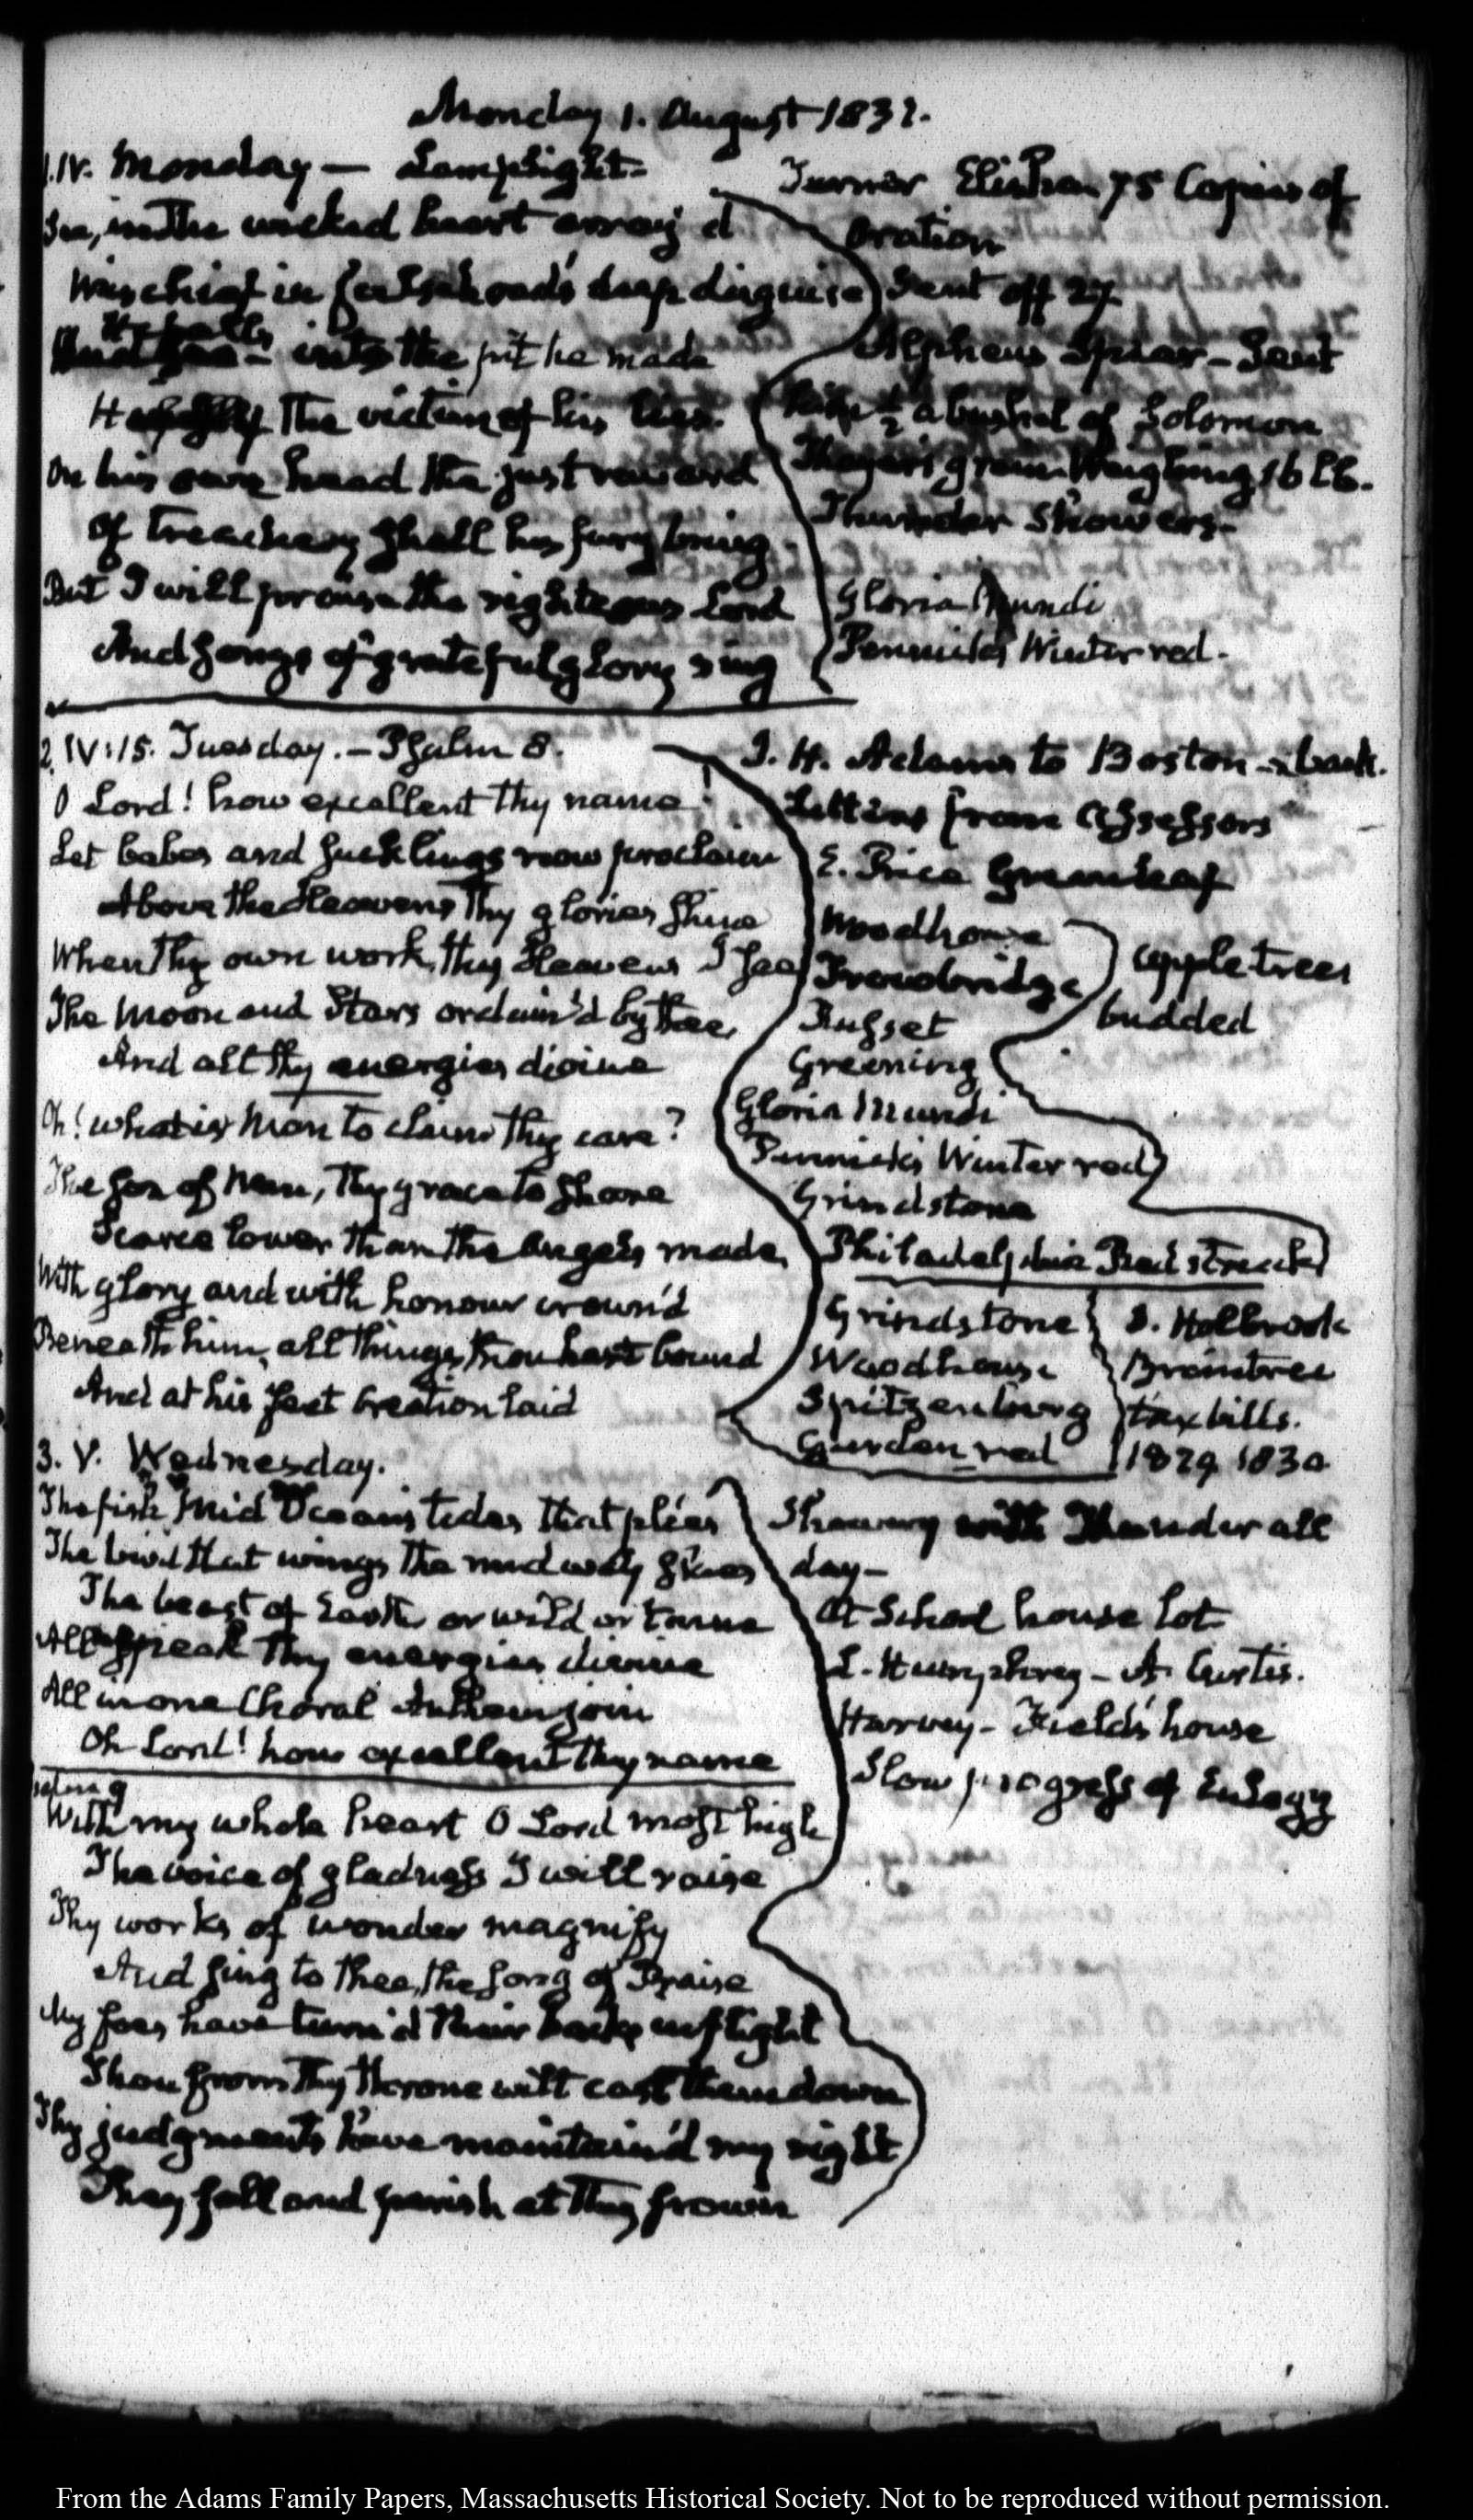 Monday 1. August 1831.
1. IV. Monday — Lamplight-
See, in the wicked heart array'd
Mischief in falsehood's deep disguise
He falls
into the pit he made
The victim of his lies.
On his own head the just reward
Of treachery shall his fury bring
But I will praise the righteous Lord
And songs of grateful glory sing
Turner Elisha 75 Copies of
Oration
Sent off 27
Alpheus Spear – Sent
him ½ a bushel of Solomon
Thayer's Weighing 16 lb.
Thunder showers-
Gloria Mundi
Pennick's Winter red.
2. IV:15. Tuesday. – Psalm 8.
O Lord! how excellent thy name!
Let babes and sucklings now proclaim
Above the Heavens Thy glories shine
When Thy own work, thy Heavens I see
The Moon and Stars ordain'd by thee,
And all thy energies divine
Oh! what is Man to claim thy care?
The Son of Man, Thy grace to share
Scarce lower than the Angels made,
With glory and with honour crown'd
Beneath him, all things thou hast bound
And at his feet Creation laid
I. H. Adams to Boston & back.
Letters from Assessors
E. Price Greenleaf
Woodhouse
Trowbridge
apple trees
Russet
budded
Greening
Gloria Mundi
Pennick's Winter red
Grindstone
Philadelphia Red streak
Grindstone
Woodhouse
Spitzenburg
Garden red
S. Holbrook
Braintree
tax bills.
1829 1830
3. V. Wednesday.
The fish, Mid Ocean's tides that plies
The bird that wings the midway skies
The beast of Earth, or wild or tame
All speak Thy energies divine
All in one Choral Anthem join
Oh Lord! how excellent thy name
Psalm 9
With my whole heart O Lord most high
The voice of gladness I will raise
Thy works of wonder magnify
And sing to thee, the song of Praise
My foes have turn'd their backs in flight
Thou from Thy throne wilt cast them down
Thy judgments have maintain'd my right
They fall and perish at Thy frown
Showery with Thunder all
day –
At School house lot
L. Humphrey – A. Curtis.
Harvey – Field's house
Slow progress of Eulogy
From the Adams Family Papers, Massachusetts Historical Society. Not to be reproduced without permission.